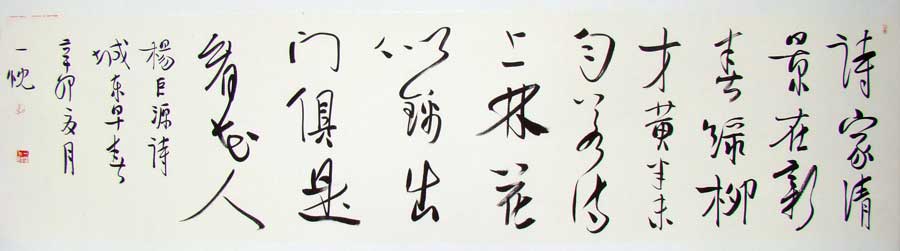 詩家清
景在新
春綠柳
才黄半未
匀若待
上林花
似錦出
门俱是
看花人
楊巨源詩
城东早春
辛卯夏月
一